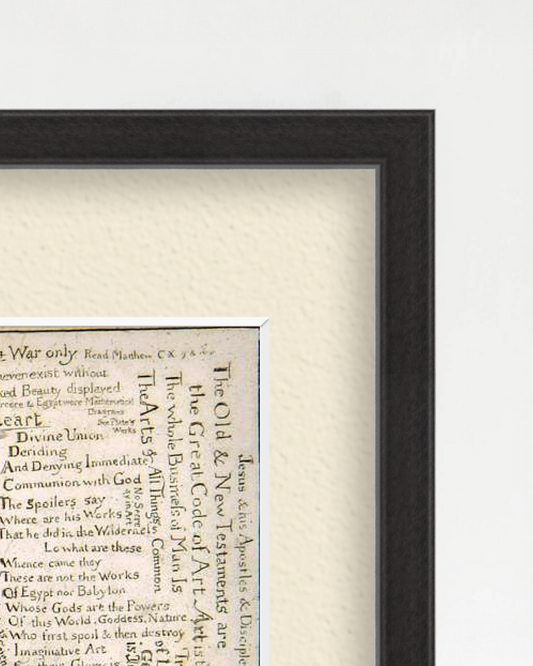 War only Read Matthew C X
never exist without
ked Beauty displayed
Egypt were Mathematical
Diagrams
See Plato's
Works
eart
Divine Union
Deriding
And Denying Immediate
Communion with God
The Spoilers say
Where are his Works
That he did in the Wilderness
Lo what are these
Whence came they
These are not the Works
Of Egypt nor Babylon
Whose Gods are the Powers
Of this World. Goddess, Nature
Who first spoil & then destroy
Imaginative Art
their Glory is
The Arts & All Things Common
No Secrecy in Art
The whole Business of Man Is
the Great Code of Art Art is
The Old & New Testaments are
Jesus & his Apostles & Disciples